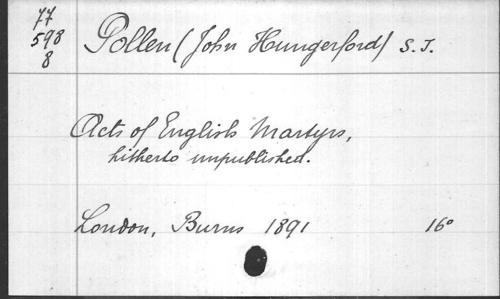 77
598
8
Pollen (John Hungerford) S.J.
Acts of English Martyrs,
hitherto unpublished.
London, Burns 1891 16°